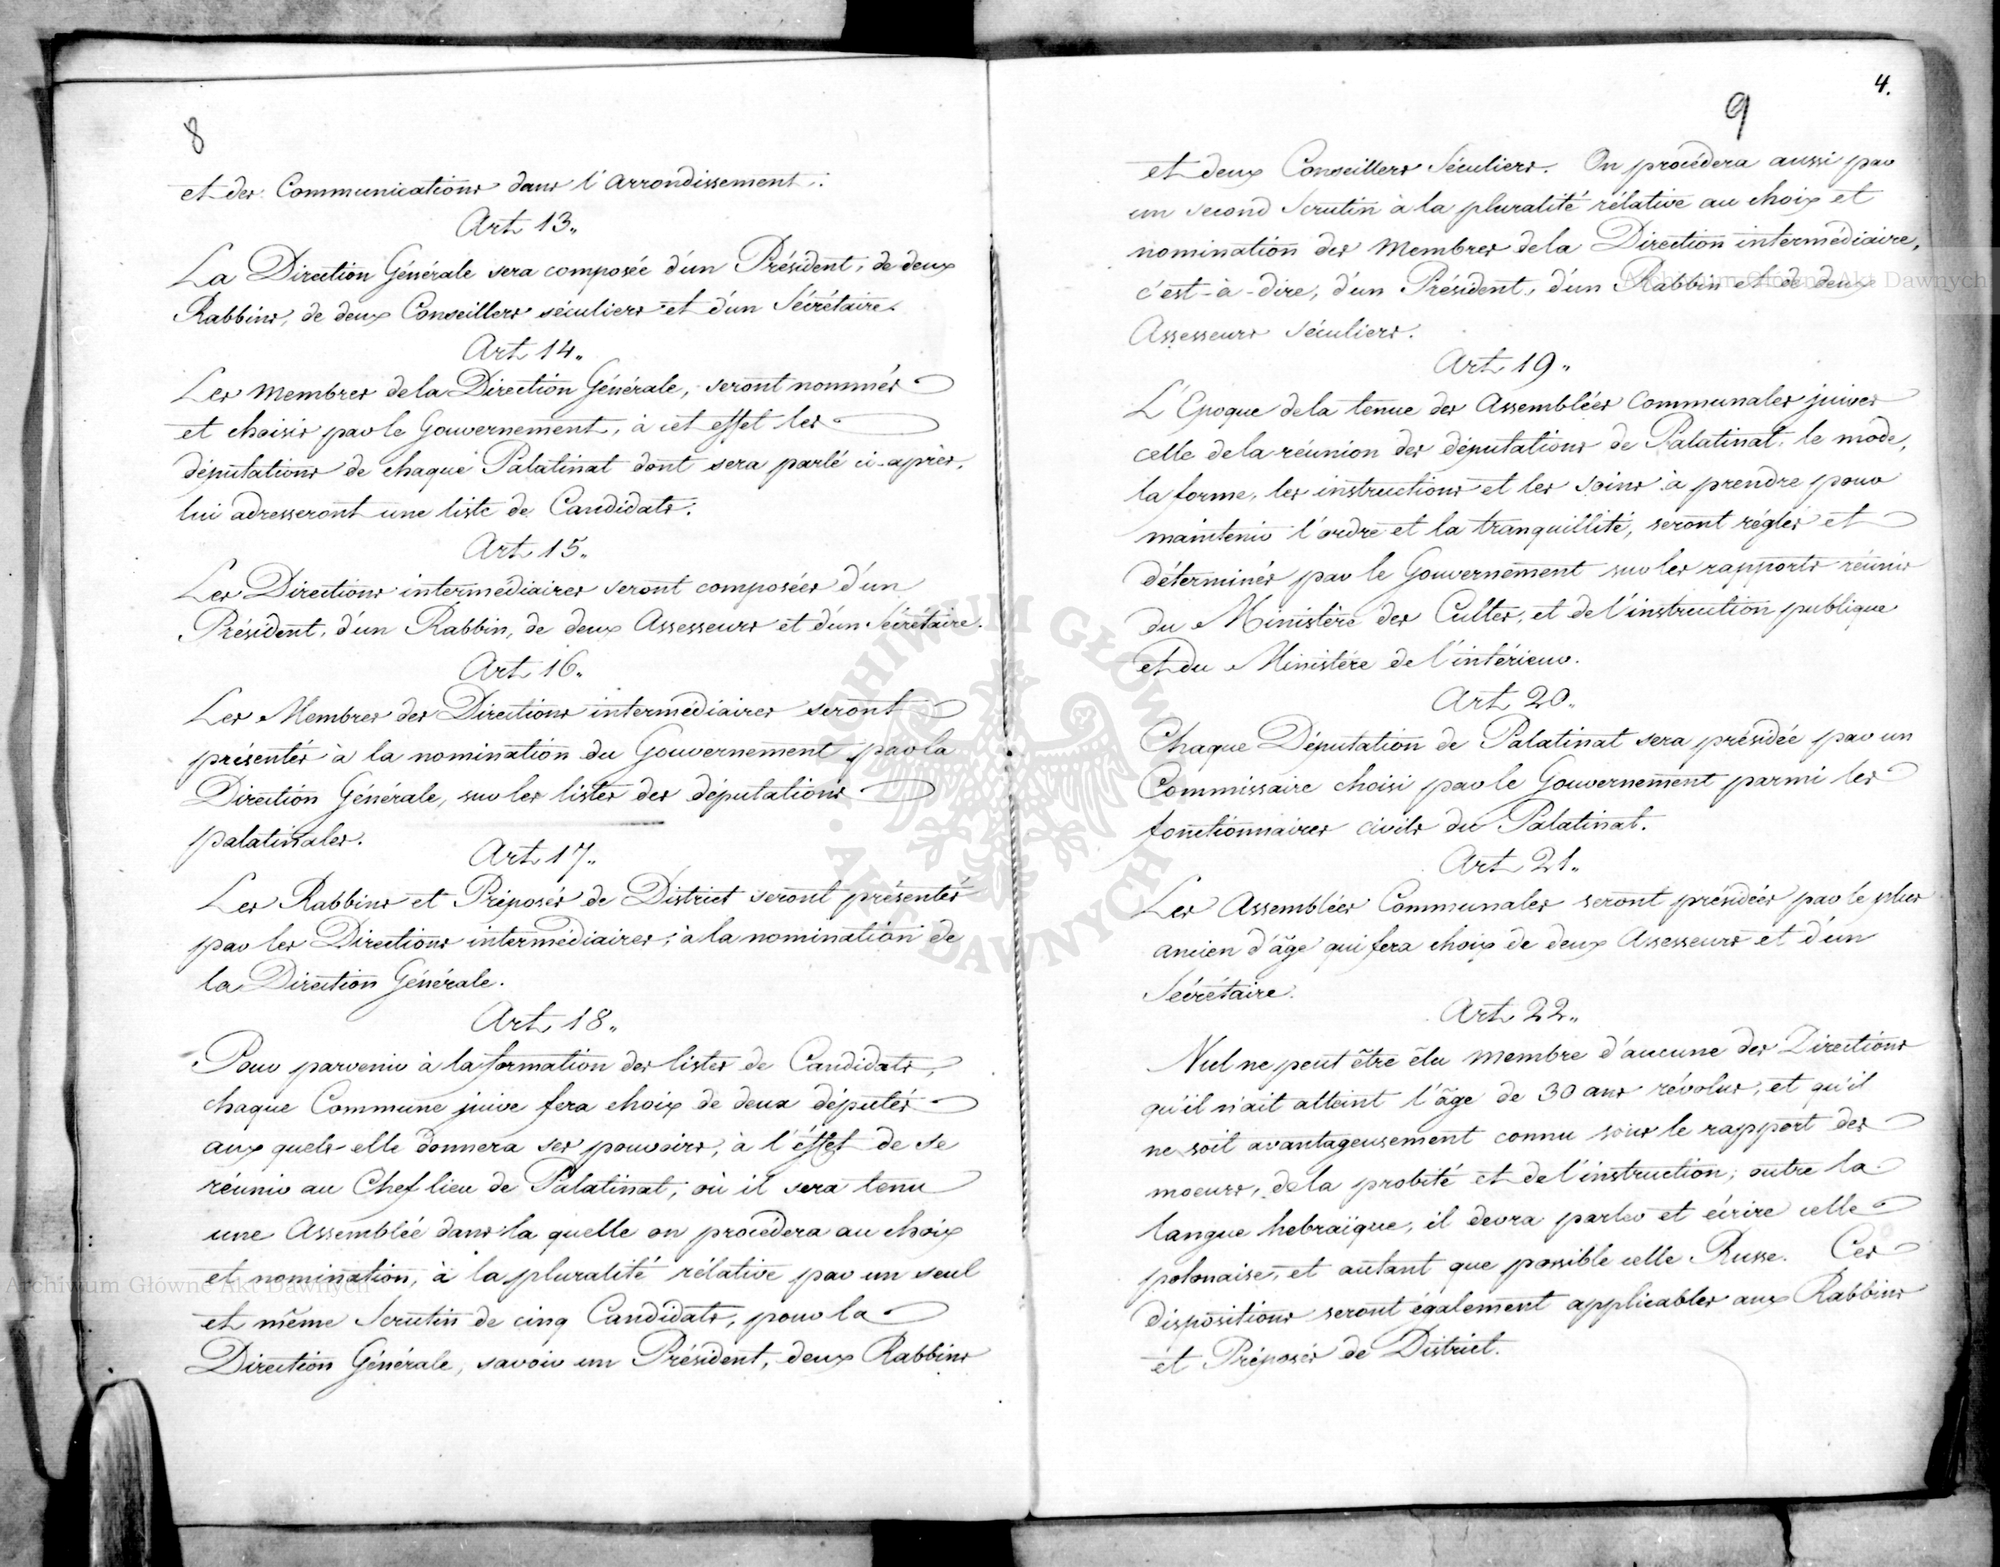 8
et des Communications dans l'Arrondissement.
Art. 13.
La Direction Générale sera composée d'un Président, de deux
Rabbins, de deux Conseillers séculiers et d'un Sécrétaire.
Art. 14.
Les Membres de la Direction Générale, seront nommés
et choisis par le Gouvernement, à cet effet les
députations de chaque Palatinat dont sera parlé ci-après,
lui adresseront une liste de Candidats.
Art. 15.
Les Directions intermédiaires seront composées d'un
Président, d'un Rabbin, de deux Assesseurs et d'un Sécrétaire.
Art. 16.
Les Membres des Directions intermédiaires seront
présentés à la nomination du Gouvernement par la
Direction Générale, sur les listes des députations
palatinales.
Art. 17.
Les Rabbins et Préposés de District seront présentés
par les Directions intermédiaires, à la nomination de
la Direction Générale.
Art. 18.
Pour parvenir à la formation des listes de Candidats,
chaque Commune juive fera choix de deux députés
aux quels elle donnera ses pouvoirs, à l'éffet de se
réunir au Chef lieu de Palatinat, où il sera tenu
une Assemblée dans la quelle on procédera au choix
et nomination, à la pluralité rélative par un seul
et même Scrutin de cinq Candidats, pour la
Direction Générale, savoir un Président, deux Rabbins
4.
9
et deux Conseillers Séculiers. On procédera aussi par
un second Scrutin à la pluralité rélative au choix et
nomination des Membres de la Direction intermédiaire,
c'est-à-dire, d'un Président, d'un Rabbin et de deux
Assesseurs Séculiers.
Art. 19.
L'Epoque de la tenue des Assemblées Communales juives
celle de la réunion des députations de Palatinat, le mode,
la forme, les instructions et les soins à prendre pour
maintenir l'ordre et la tranquillité, seront réglés et
déterminés par le Gouvernement sur les rapports réunis
du Ministère des Cultes, et de l'instruction publique
et du Ministére de l'intérieur.
Art. 20.
Chaque Députation de Palatinat sera présidée par un
Commissaire choisi par le Gouvernement parmi les
fonctionnaires civils du Palatinat.
Art. 21.
Les Assemblées Communales seront présidées par le plus
ancien d'âge qui fera choix de deux Assesseurs et d'un
Sécrétaire.
Art. 22.
Nul ne peut être élu Membre d'aucune des Directions
qu'il n'ait atteint l'âge de 30 ans révolus, et qu'il
ne soit avantageusement connu sous le rapport des
moeurs, de la probité et de l'instruction; outre la
langue hebraïque, il devra parler et écrire celle
polonaise, et autant que possible celle Russe. Ces
dispositions seront également applicables aux Rabbins
et Préposés de District.
Archiwum Główne Akt Dawnych
Archiwum Główne Akt Dawnych
ARCHIWUM GŁÓWNE AKT DAWNYCH